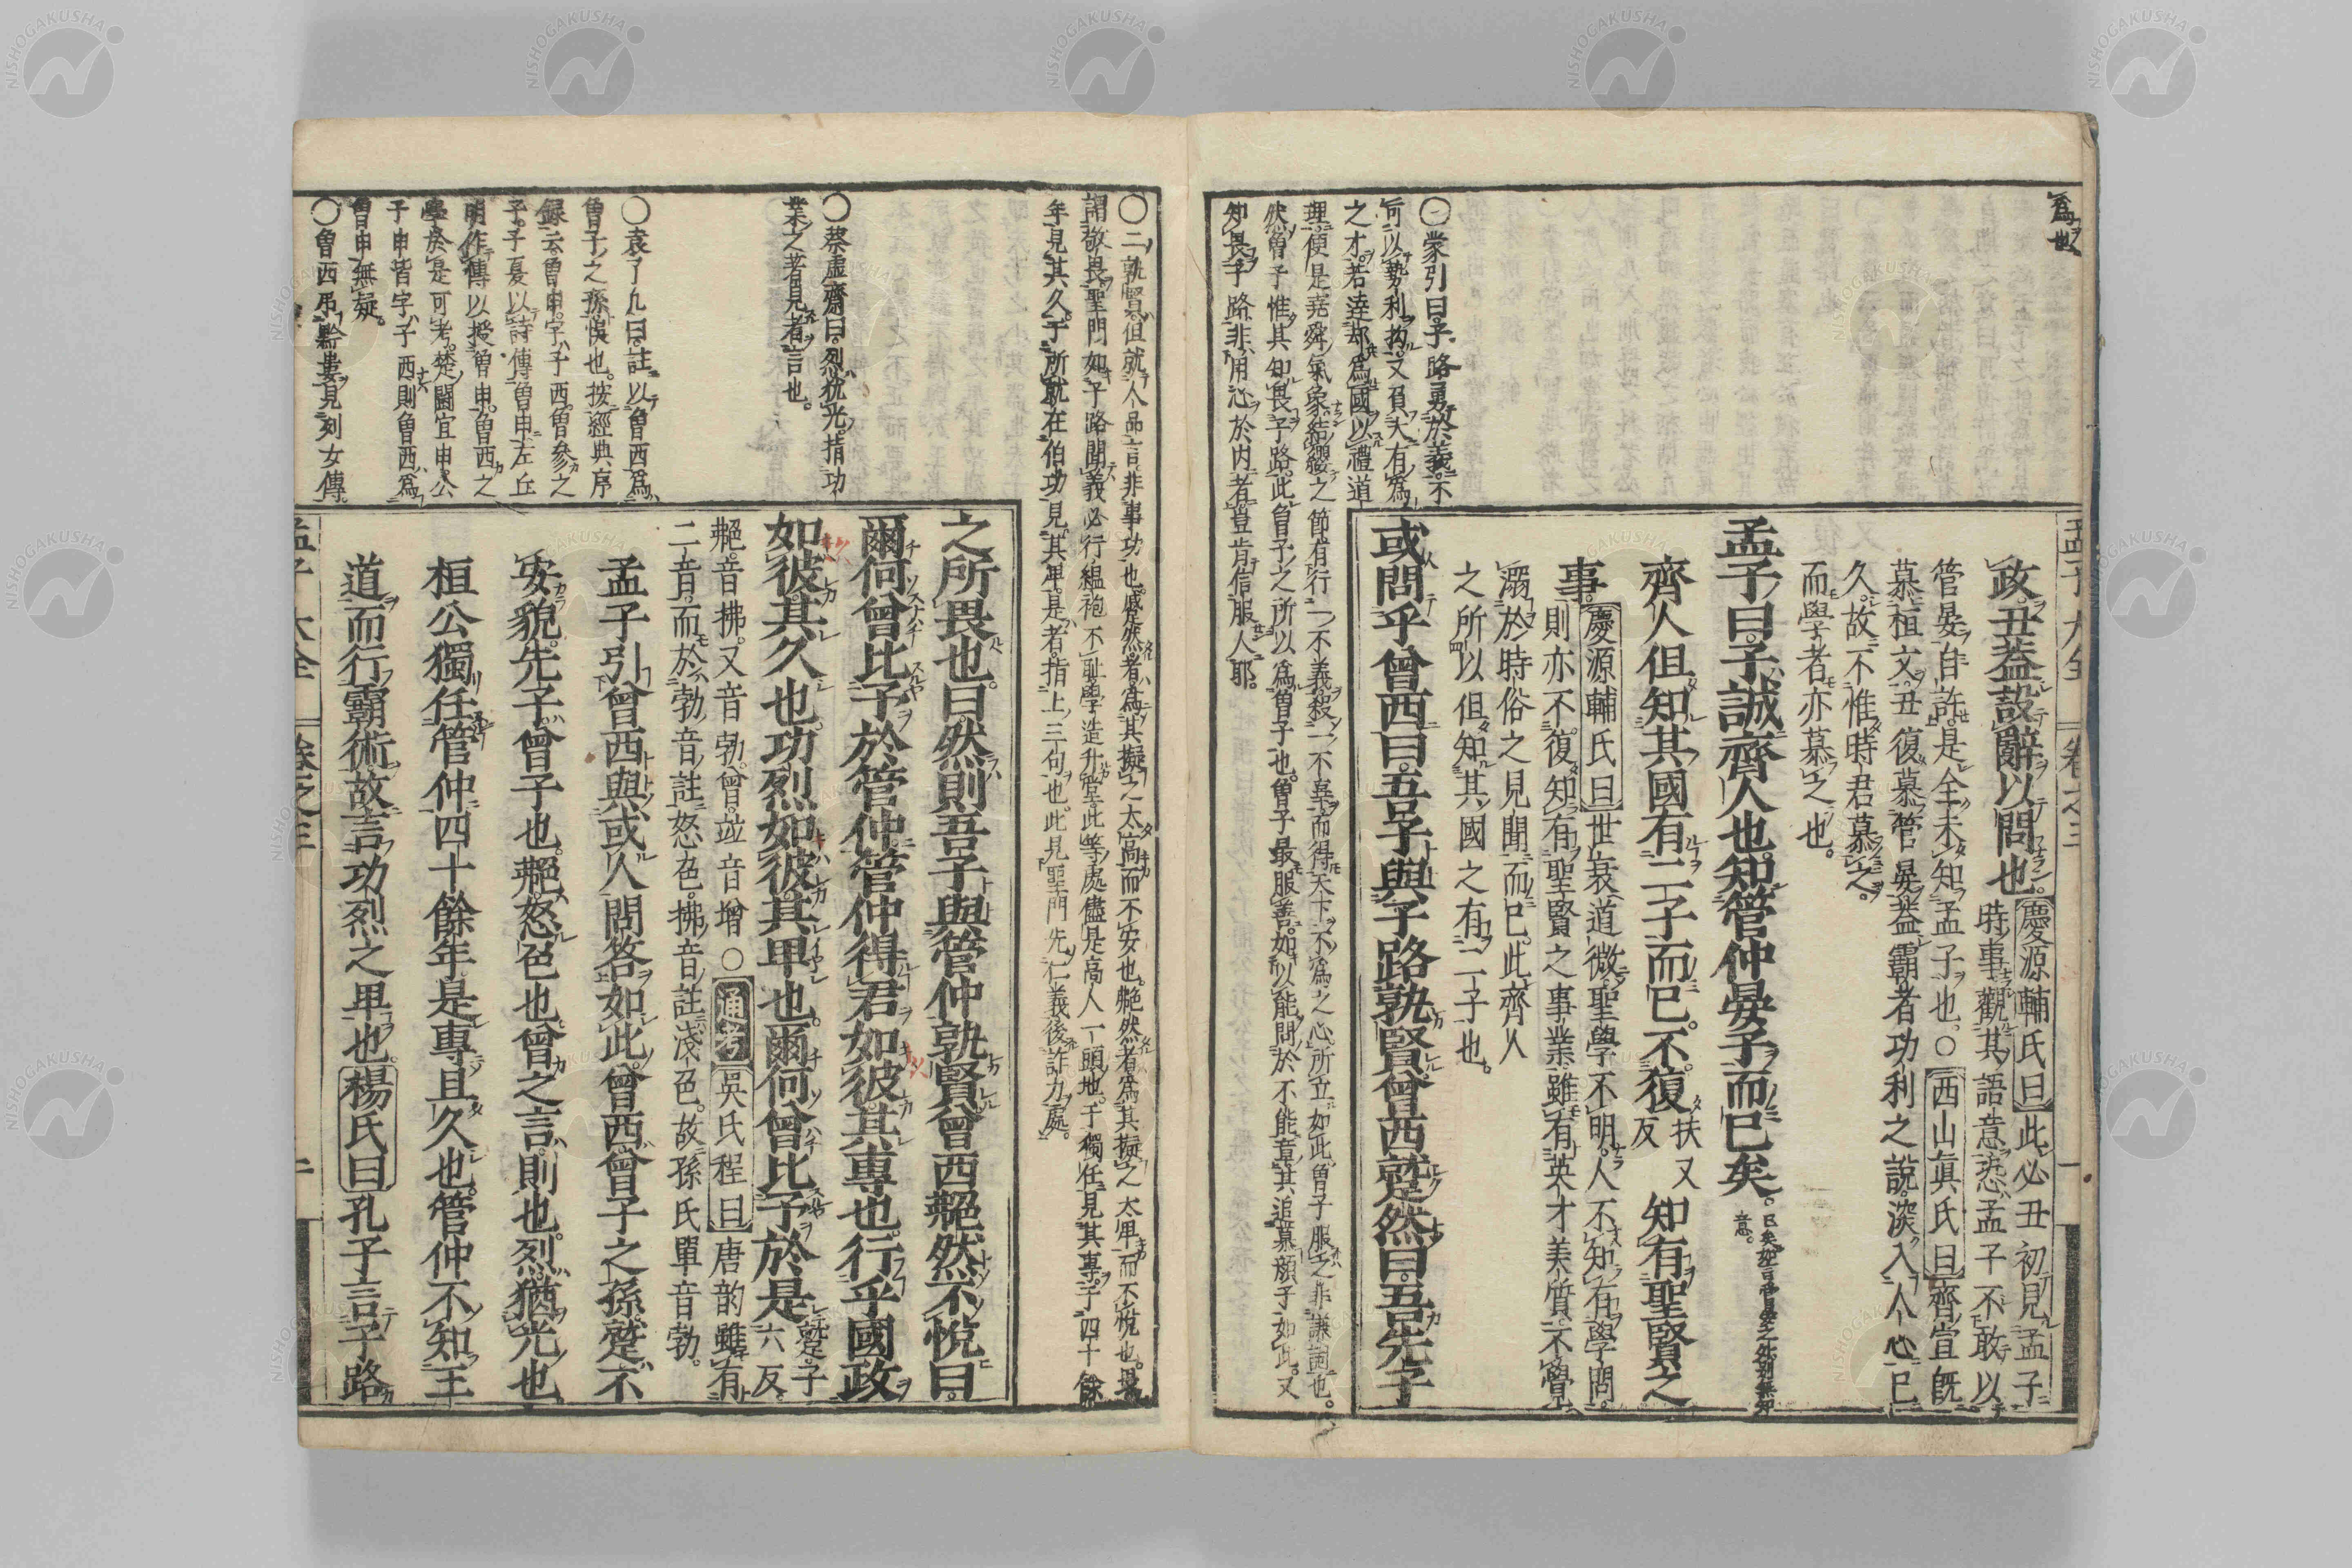 為也
政丑蓋設辭以問也慶源輔氏曰此必丑初見孟子
時事觀其語意恐孟子不敢以
管晏自許是全未知孟子也○西山眞氏曰齊宣旣
慕桓文丑復慕管晏蓋霸者功利之說深入人心已
久故不惟時君慕之
而學者亦慕之也
孟子曰子誠齊人也知管仲晏子而已矣
齊人但知其國有二子而已不復扶又反知有聖賢之
事慶源輔氏曰世衰道微聖學不明人不知有學問
則亦不復知有聖賢之事業雖有英才美質不覺
溺於時俗之見聞而已此齊人
之所以但知其國之有二子也
○蒙引曰子路勇於義不
可以勢利拘又負大有為
之才若達却為國以禮道
理便是堯舜氣象結纓之節有行一不義殺一不辜而得天下不為之心所立如此曾子服之非謙詞也
然曾子惟其知畏子路此曾子之所以為曾子也曾子最服善如以能問於不能章其追慕顏子如此又
知畏子路非用心於内者豈肯信服人耶
或問乎曾西曰吾子與子路孰賢曾西蹵然曰吾先子
○二孰賢但就人品言非事功也蹵然者為其擬之太高而不安也艴然者為其擬之太卑而不悅也畏
謂敬畏聖門如子路聞義必行縕袍不耻學造升堂此等處儘是高人一頭地于獨任見其專于四十餘
年見其久于所就在伯功見其卑是者指上三句也此見聖門先仁義後詐力處
之所畏也曰然則吾子與管仲孰賢曾西艴然不悅曰
爾何曾比予於管仲管仲得君如彼其專也行乎國政
如彼其久也功烈如彼其卑也爾何曾比予於是蹵子六反
艴音拂又音勃曾並音增○通考吳氏程曰唐韵雖有
二音而於勃音註怒色拂音註淺色故孫氏單音勃
○蔡虛齋曰烈猶光指功
業之著見者言也
孟子引曾西與或人問答如此曾西曾子之孫蹵不
安貌先子曾子也艴怒色也曾之言則也烈猶光也
桓公獨任管仲四十餘年是專且久也管仲不知王
道而行霸術故言功烈之卑也楊氏曰孔子言子路
○袁了凡曰註以曾西為
曾子之孫悞也按經典序
錄云曾申字子西曾參之
子子夏以詩傳曾申左丘
明作傳以授曾申曾西之
學於是可考楚鬪宜申公
子申皆字子西則曾西為
曾申無疑
○曾西吊黔婁見列女傳